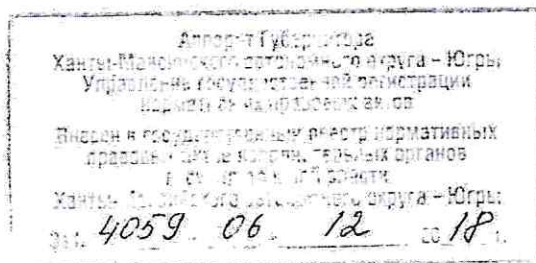 Аппарат Губернатора
Ханты-Мансийского автономного округа – Югры
Управление государственной регистрации
нормативных правовых актов
Внесен в государственный реестр нормативных
правовых актов исполнительных органов
государственной власти
Ханты-Мансийского автономного округа – Югры
4059 06 12 2018 г.